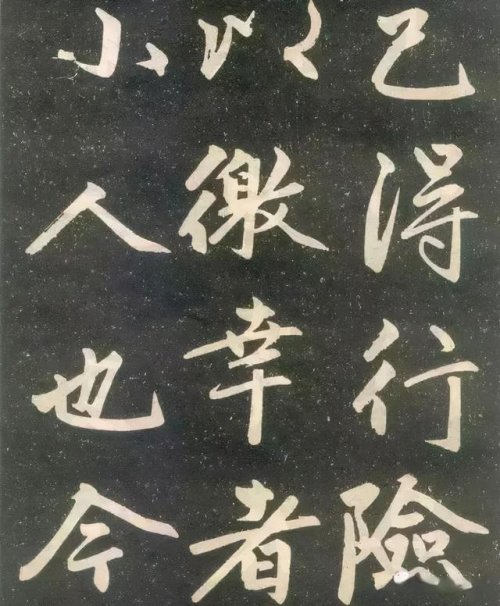 己得行險
以徼幸者
小人也今